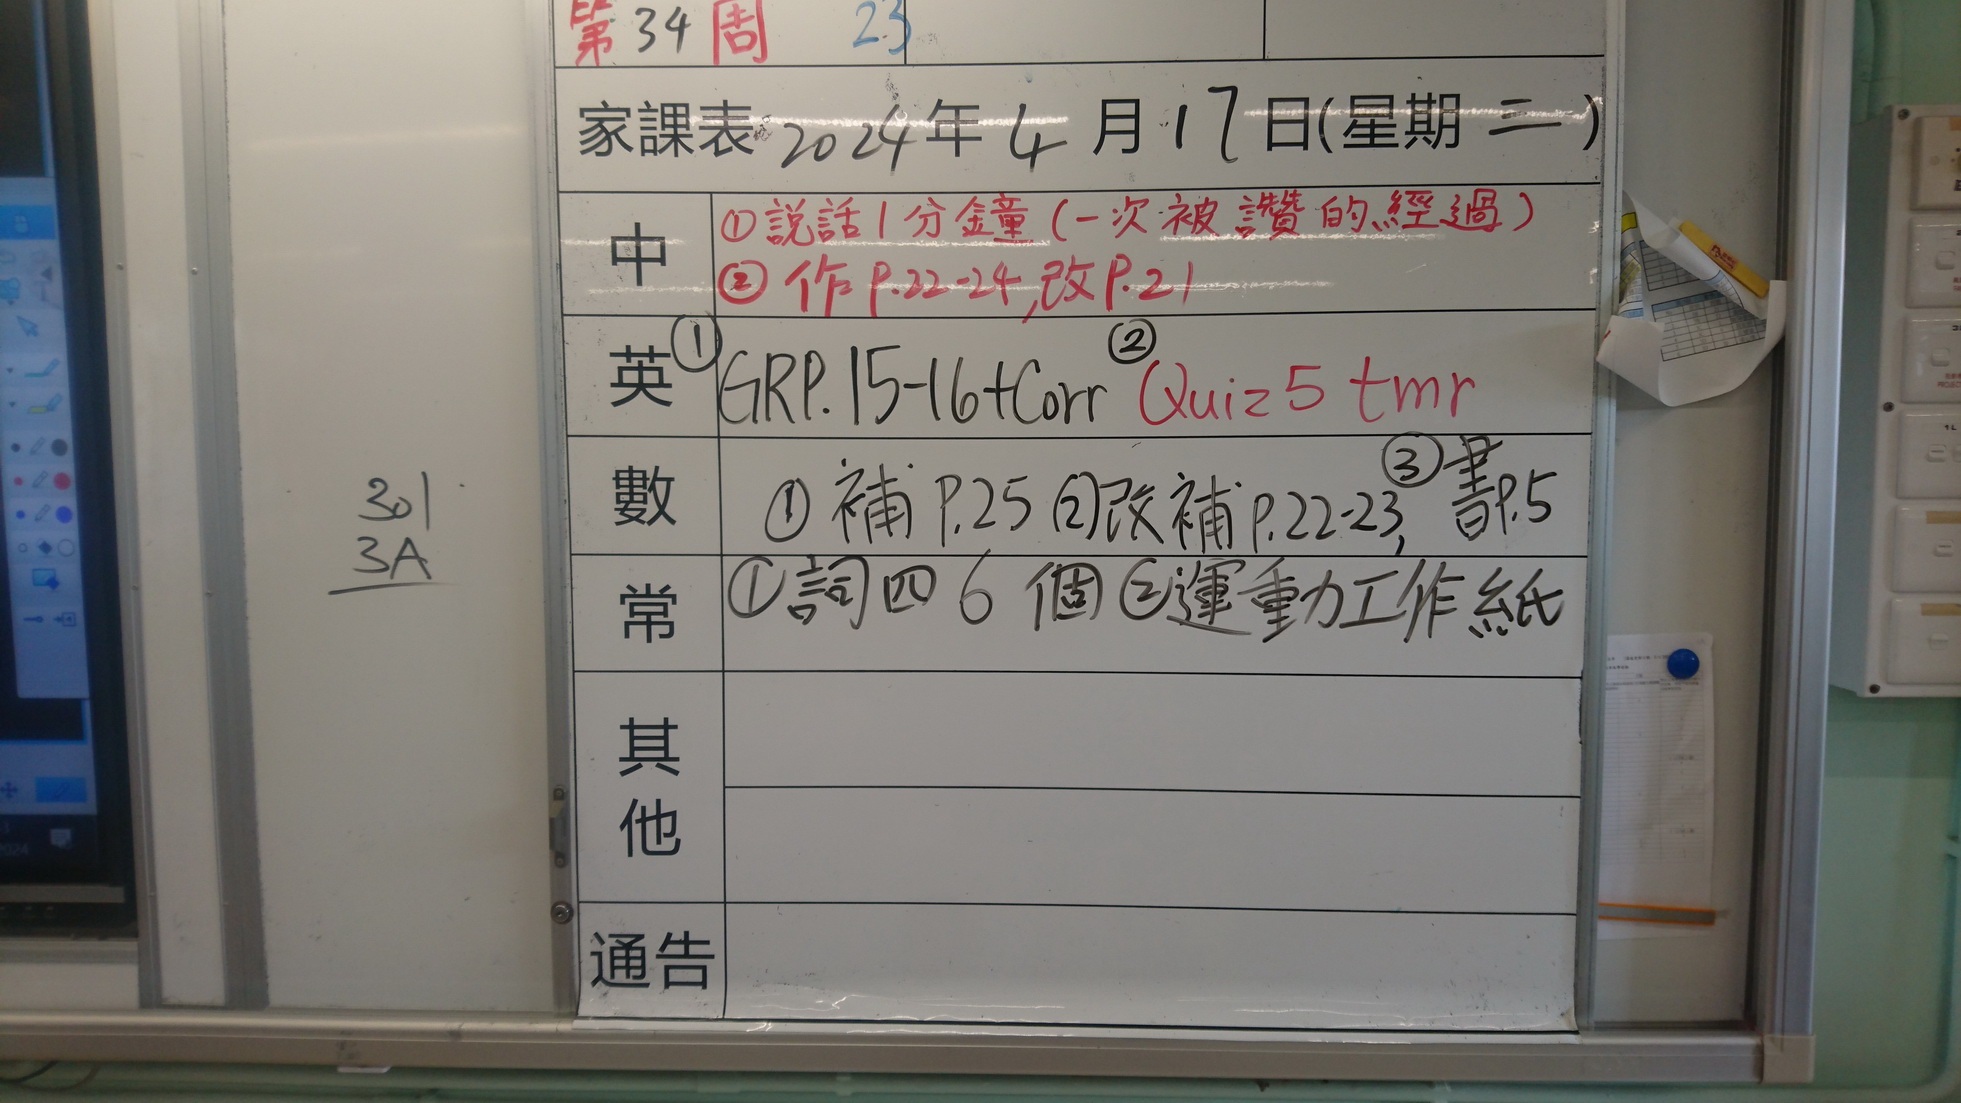 第34周 23
家課表 2024年4月17日(星期二)
中 ①説話1分鐘(一次被讚的經過)
② 作P.22-24,改P.21
英 ① GRP.15-16+Corr ② Quiz5 tmr
數 ① 補P.25 ②改補P.22-23, ③書P.5
常 ①詞四 6個 ②運動力工作紙
其他
通告
301
3A